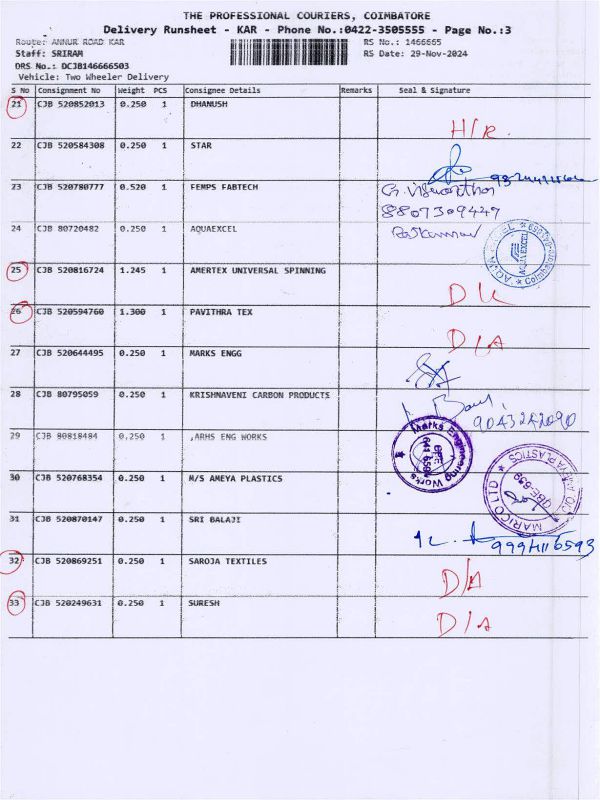 THE PROFESSIONAL COURIERS, COIMBATORE
Delivery Runsheet - KAR - Phone No.:0422-3505555 - Page No.:3
Route: ANNUR ROAD KAR RS No.: 1466665
Staff: SRIRAM RS Date: 29-Nov-2024
DRS No.: DCJB146666503
Vehicle: Two Wheeler Delivery
S No Consignment No Weight PCS Consignee Details Remarks Seal & Signature
21 CJB 520852013 0.250 1 DHANUSH
22 CJB 520584308 0.250 1 STAR
23 CJB 520780777 0.520 1 FEMPS FABTECH
8807309447
24 CJB 80720482 0.250 1 AQUAEXCEL
AQUA EXCEL
25 CJB 520816724 1.245 1 AMERTEX UNIVERSAL SPINNING
26 CJB 520594760 1.300 1 PAVITHRA TEX
D/A
27 CJB 520644495 0.250 1 MARKS ENGG
28 CJB 80795059 0.250 1 KRISHNAVENI CARBON PRODUCTS
29 CJB 80818484 0.250 1 ,ARHS ENG WORKS
Marks Engineering Works
30 CJB 520768354 0.250 1 M/S AMEYA PLASTICS
MARICO LTD
31 CJB 520870147 0.250 1 SRI BALAJI
32 CJB 520869251 0.250 1 SAROJA TEXTILES
D/A
33 CJB 520249631 0.250 1 SURESH
D/A